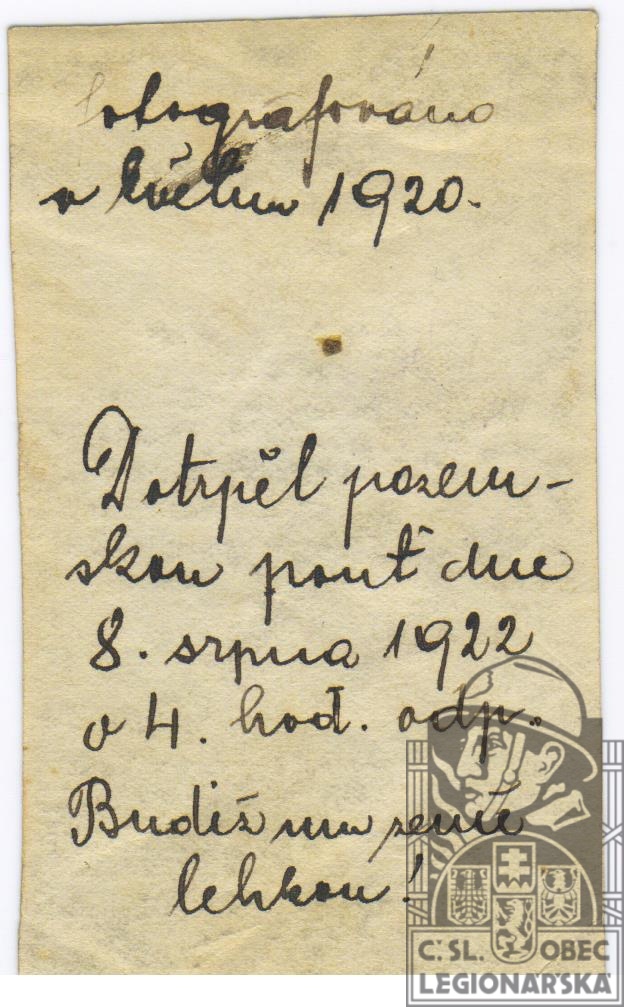 fotografováno
v květnu 1920.
Dotrpěl pozem-
skou pouť dne
8. srpna 1922
o 4. hod. odp.
Budiž mu země
lehkou!
Č.SL. OBEC
LEGIONÁŘSKÁ